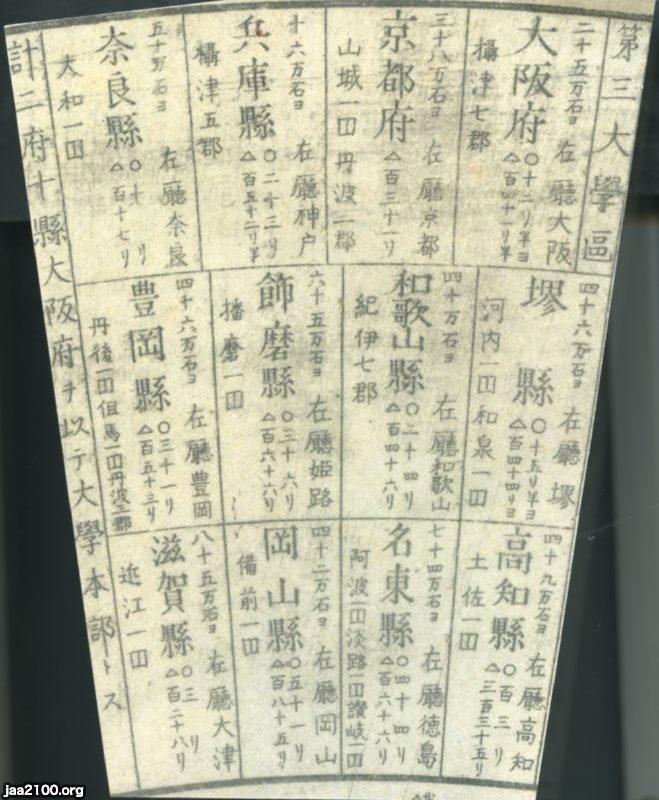 第三大學區
二十五万石ヨ 在廳大阪
大阪府 ○十二り半ヨ △百四十一り半
攝津七郡
三十八万石ヨ 在廳京都
京都府 △百三十一り
山城一囗丹波二郡
十六万石ヨ 在廳神戸
兵庫縣 ○二十三り △百五十二り半
攝津五郡
五十万石ヨ 在廳奈良
奈良縣 ○十り △百十七り
大和一囗
四十六万石ヨ 在廳堺
堺縣 ○十五り半ヨ △百四十四りヨ
河内一囗和泉一囗
四十万石ヨ 在廳和歌山
和歌山縣 ○二十四り △百四十六り
紀伊七郡
六十五万石ヨ 在廳姫路
飾磨縣 ○三十六り △百六十六り
播磨一囗
四十六万石ヨ 在廳豊岡
豊岡縣 ○三十一り △百五十三り
丹後一囗但馬一囗丹波三郡
四十九万石ヨ 在廳高知
高知縣 ○百三り △三百三十五り
土佐一囗
七十四万石ヨ 在廳徳島
名東縣 ○四十四り △百六十六り
阿波一囗淡路一囗讃岐一囗
四十二万石ヨ 在廳岡山
岡山縣 ○五十一り △百八十五り
備前一囗
八十五万石ヨ 在廳大津
滋賀縣 ○三り △百二十八り
近江一囗
計二府十縣大阪府ヲ以テ大學本部トス
jaa2100.org